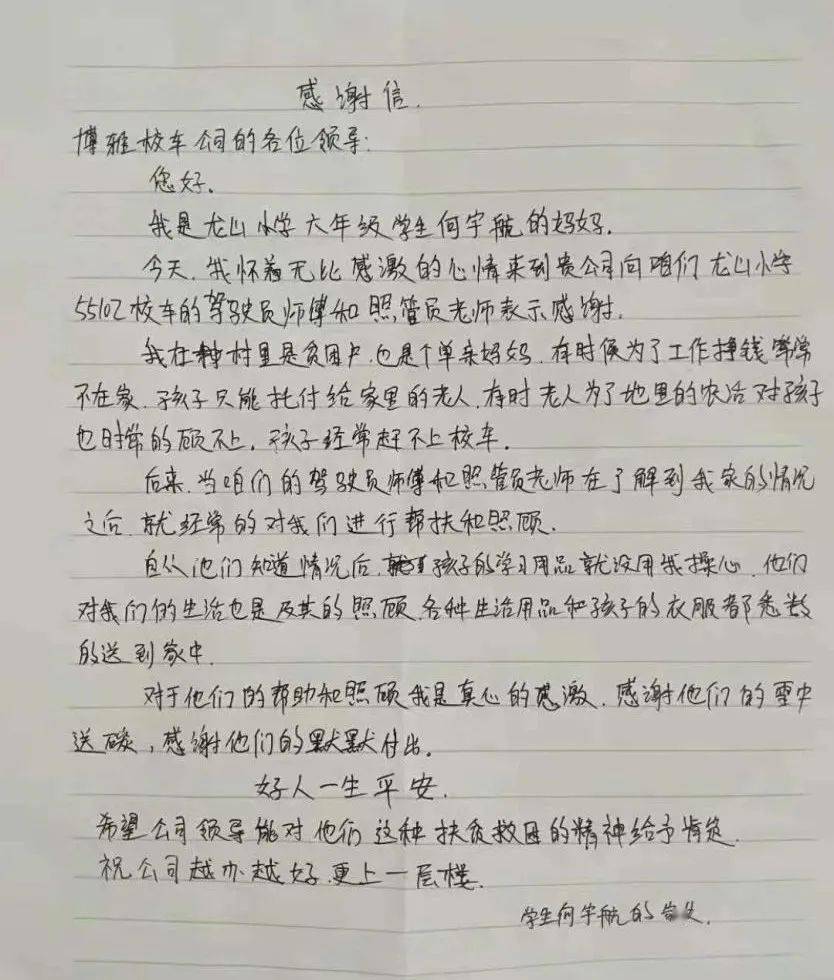 感谢信.
博雅校车公司的各位领导:
您好.
我是尤山小学六年级学生何宇航的妈妈.
今天.我怀着无比感激的心情来到贵公司向咱们尤山小学
5510Z校车的驾驶员师傅和照管员老师表示感谢.
我在村里是贫困户.也是个单亲妈妈.有时候为了工作挣钱常常
不在家.孩子只能托付给家里的老人.有时老人为了地里的农活对孩子
也时常的顾不上.孩子经常赶不上校车.
后来.当咱们的驾驶员师傅和照管员老师在了解到我家的情况
之后.就经常的对我们进行帮扶和照顾.
自从他们知道情况后.孩子的学习用品就没用我操心.他们
对我们的生活也是及其的照顾.各种生活用品和孩子的衣服都悉数
的送到家中.
对于他们的帮助和照顾我是真心的感激.感谢他们的雪中
送碳,感谢他们的默默付出.
好人一生平安.
希望公司领导能对他们这种扶贫救困的精神给予肯定.
祝公司越办越好.更上一层楼.
学生何宇航的家长.